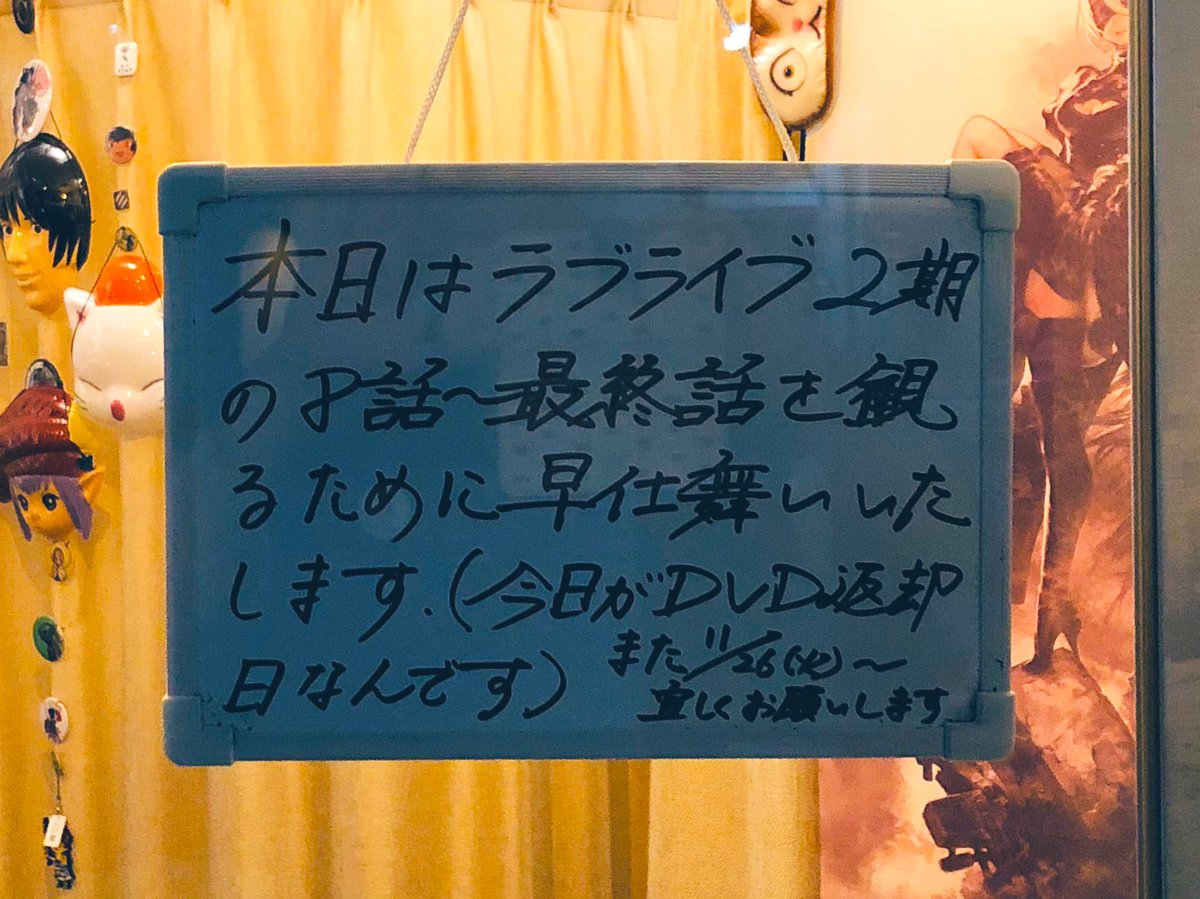 本日はラブライブ2期
の8話〜最終話を観
るために早仕舞いいた
します.(今日がDVD返却
日なんです)
また11/26(火)〜
宜しくお願いします